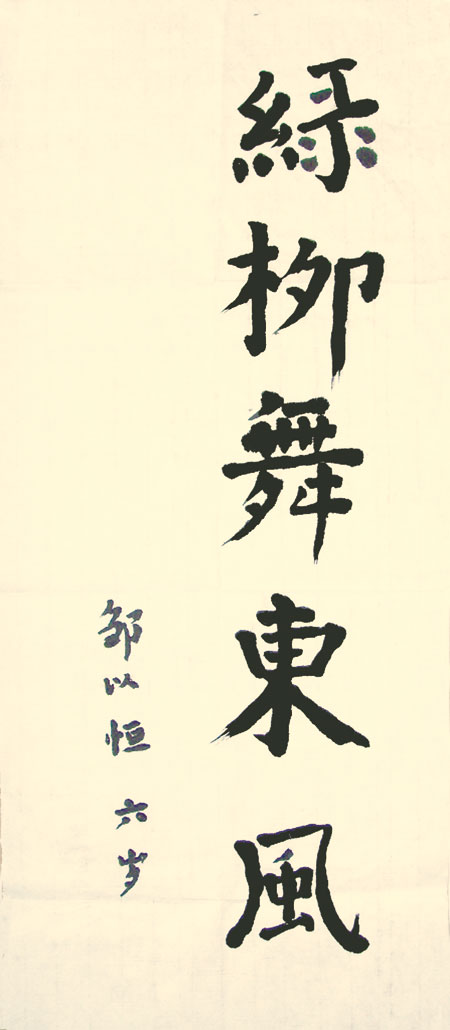 綠柳舞東風
邹以恒 六岁